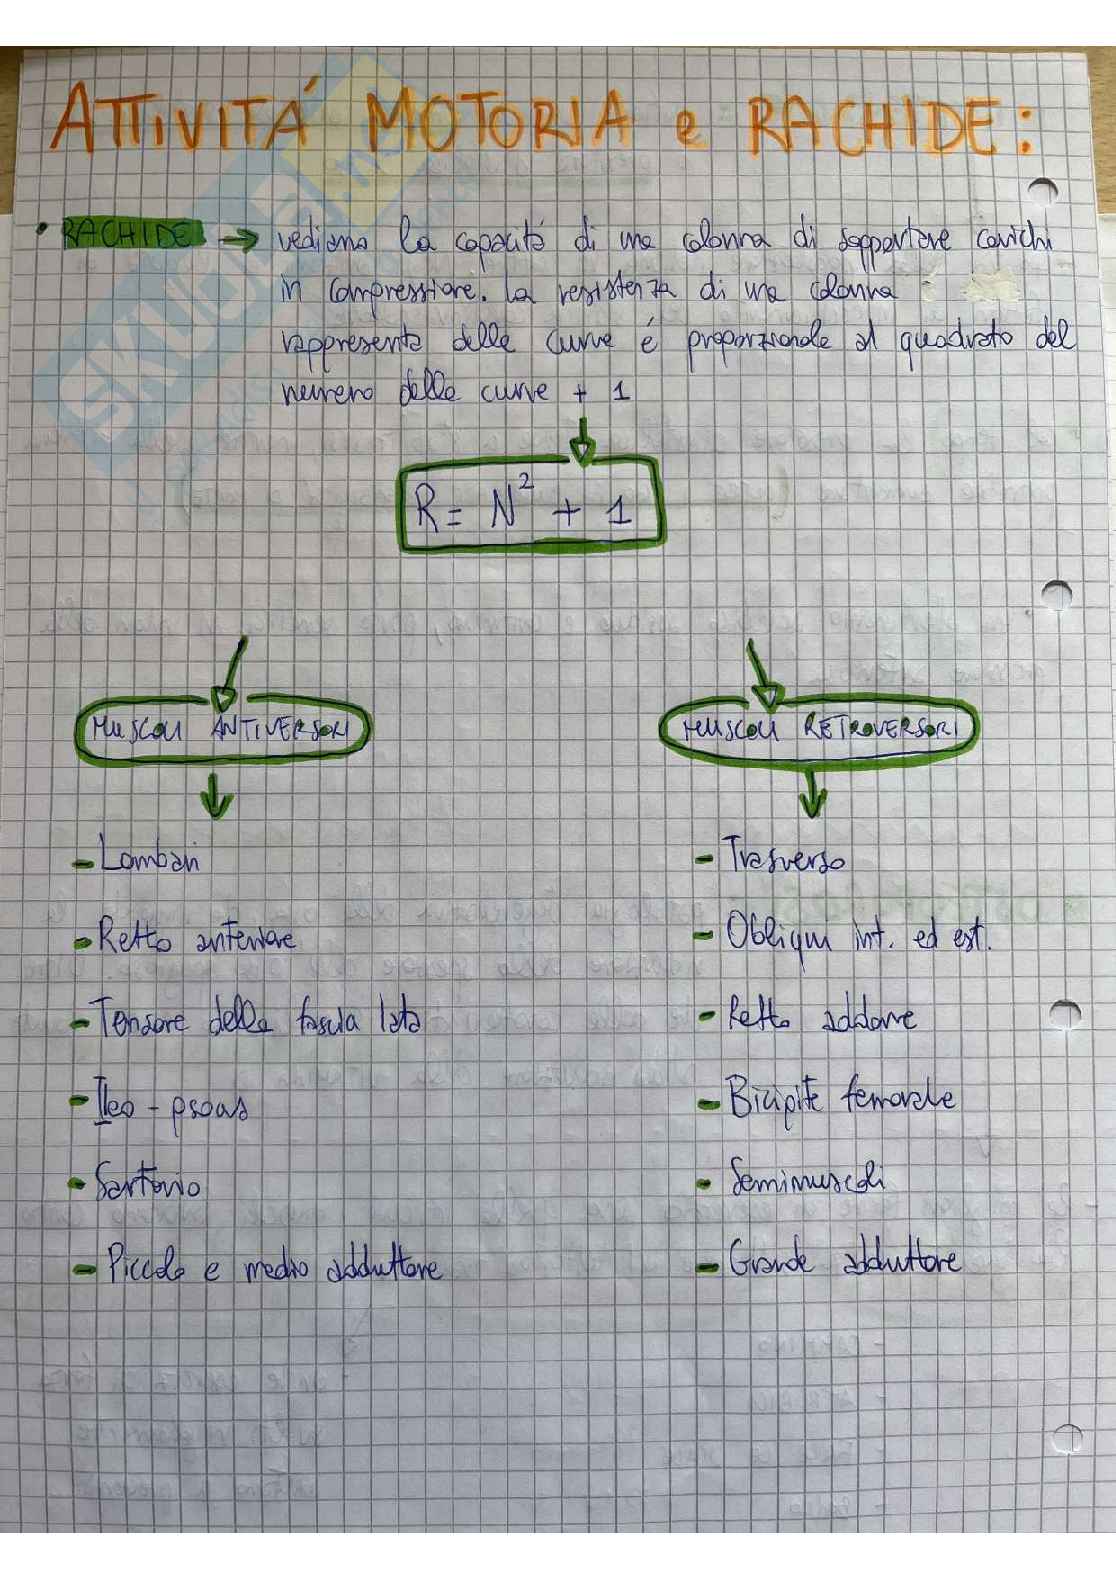 ATTIVITÁ MOTORIA e RACHIDE:
• RACHIDE → vediamo la capacitá di una colonna di sopportare carichi
in compressione. La resistenza di una colonna
rappresenta delle curve é proporzionale al quadrato del
numero delle curve + 1
R = N² + 1
MUSCOLI ANTIVERSORI
MUSCOLI RETROVERSORI
- Lombari
- Trasverso
- Retto anteriore
- Obliqui int. ed est.
- Tensore della fascia lata
- Retto addome
- Ileo - psoas
- Bicipite femorale
- Sartorio
- Semimuscoli
- Piccolo e medio adduttore
- Grande adduttore
SKUOLA.net